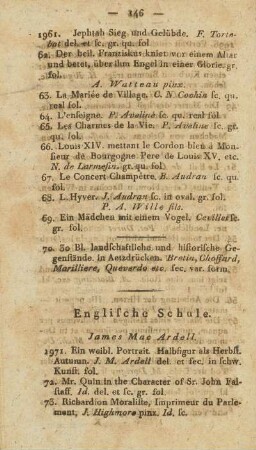 — 146 —
1961. Jephtah Sieg und Gelübde. F. Torte-
bat del. et sc. gr. qu. fol.
62. Der heil. Franziskus kniet vor einem Altar
und betet, über ihm Engel in einer Glorie. gr.
fol.
A. Watteau pinx.
63. La Mariée de Village. C. N. Cochin sc. qu.
real fol.
64. L'enseigne. P. Aveline sc. qu. real fol.
65. Les Charmes de la Vie. P. Aveline sc. gr.
qu. fol.
66. Louis XIV. mettant le Cordon bleu à Mon-
sieur de Bourgogne Pere de Louis XV. etc.
N. de Larmessin. gr. qu. fol.
67. Le Concert Champêtre. B. Audran sc. qu.
fol.
68. L. Hyver. J. Audran sc. in oval. gr. fol.
P. A. Wille fils.
69. Ein Mädchen mit einem Vogel. Cevillet sc.
gr. fol.
70. 80 Bl. landschaftliche und historische Ge-
genstände. in Aetzdrücken. Bretin, Choffard,
Marilliere, Queverdo etc. sec. var. form.
Englische Schule.
James Mac Ardell.
1971. Ein weibl. Portrait. Halbfigur als Herbst.
Autumn. J. M. Ardell del. et sec. in schw.
Kunst. fol.
72. Mr. Quin in the Character of Sr. John Fal-
staff. Id. del. et sc. gr. fol.
73. Richardion Moraliste, Imprimeur du Parle-
ment, J. Highmore pinx. Id. sc.